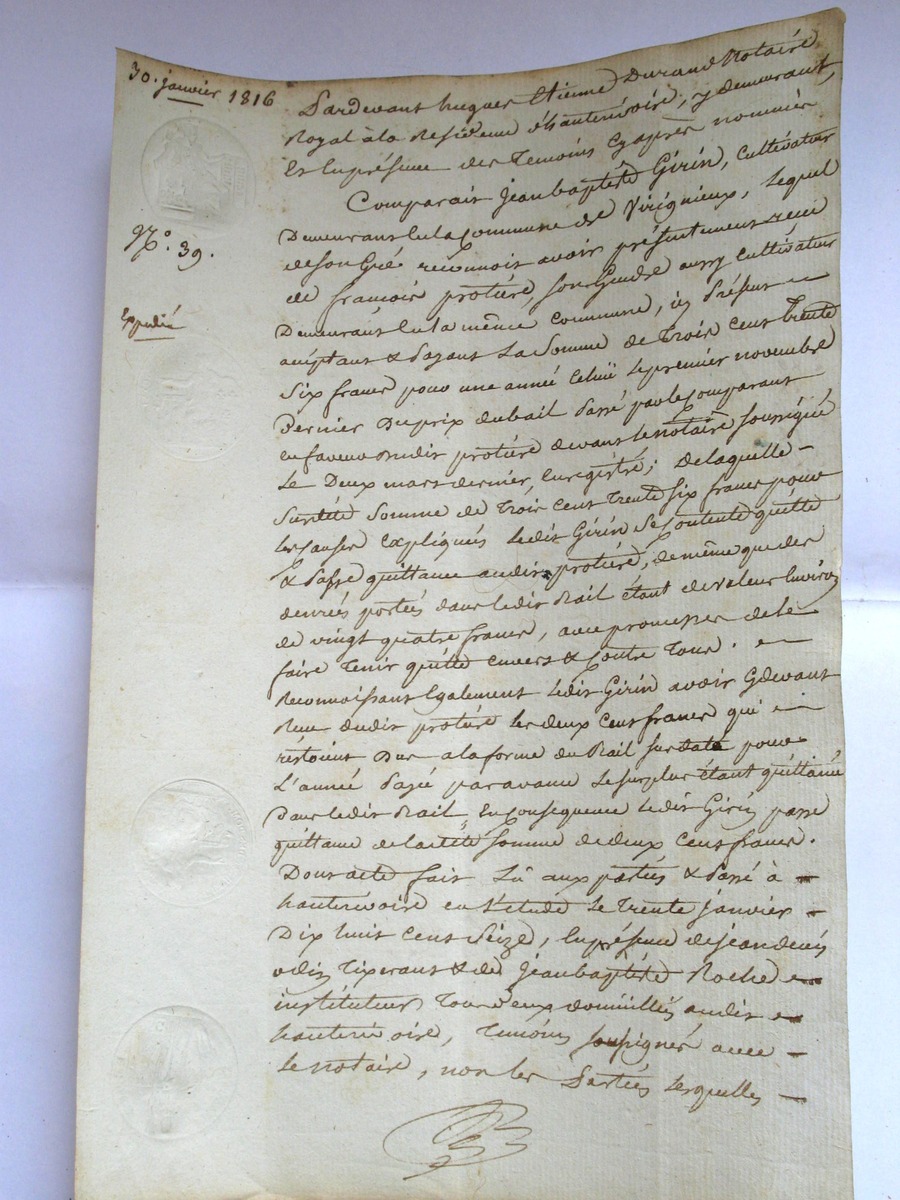 30. janvier 1816
N.º 39.
Expedié
Pardevant hugues Etienne Durand Notaire
Royal à la Residence d'hauterivoire, y demeurant,
Et En présence des Temoins Cyaprès nommés
Comparait Jean baptiste Girin, Cultivateur
Demeurant En la Commune de Virignieux, Lequel
de son Gré reconnoit avoir présentement reçu
de françois protière, son Gendre aussy Cultivateur
Demeurant En la même Commune, icy Présent
acceptant & Payant La Somme de Trois Cent Trente
Six francs pour une année Echue Le premier novembre
Dernier Du prix du bail Passé par le Comparant
en faveur dudit protière devant le Notaire soussigné
Le Deux mars dernier, Enregistré; De laquelle
Susdite Somme de Trois Cent Trente Six francs pour
les causes expliquées ledit Girin se Contente quitte
& Passe quittance audit protière, de même que des
denrées portées dans ledit Bail étant de valeur Environ
de vingt quatre francs, avec promesses de le
faire Tenir quitte envers & Contre Tous.
Reconnoissant Egalement ledit Girin avoir Cydevant
Reçu dudit protière les deux Cent francs qui
restoient Dus a la forme du Bail susdaté pour
L'année Payée par avance le surplus étant quittancé
Dans ledit Bail En Consequence ledit Girin passe
quittance de ladite somme de deux Cent francs.
Dont acte fait Lû aux parties & Passé à
hauterivoire en L'etude Le Trente janvier
Dix huit Cent Seize, En présence de jean denis
odin Tixerant & de Jean baptiste Roche
instituteur Tous deux domiciliés audit
hauterivoire, Temoins soussignés avec
Le notaire, non les Parties Lesquelles